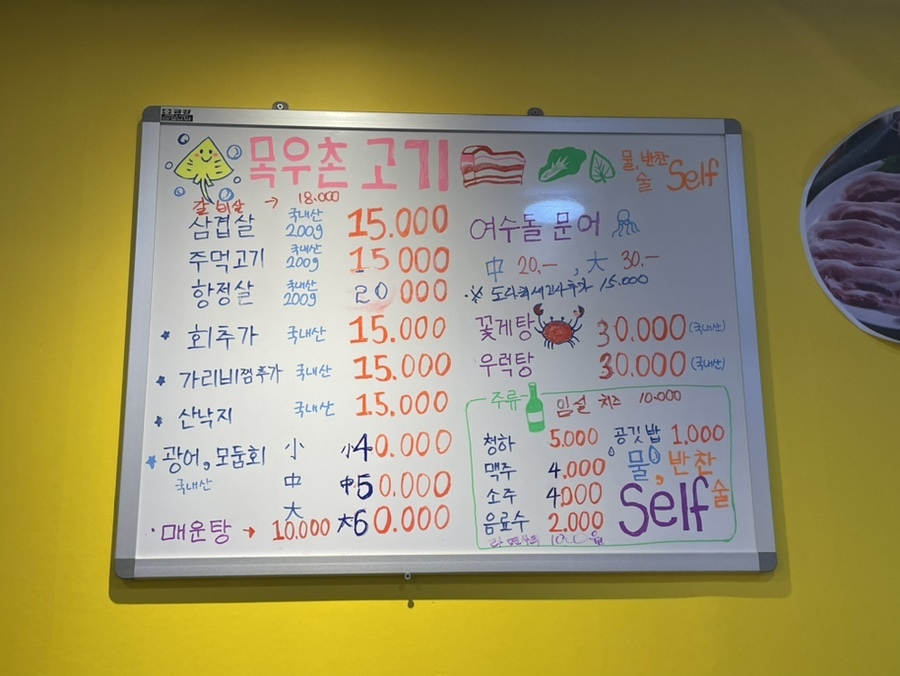 목우촌 고기
물, 반찬
술 Self
갈비살 → 18.000
삼겹살 국내산 200g 15.000
주먹고기 국내산 200g 15 000
항정살 국내산 200g 20 000
* 회추가 국내산 15.000
* 가리비찜추가 국내산 15.000
* 산낙지 국내산 15.000
* 광어, 모둠회 小 小40.000
국내산 中 中50.000
大 大60.000
· 매운탕 → 10.000
여수돌문어
中 20.— , 大 30.—
※ 15.000
꽃게탕 30.000 (국내산)
우럭탕 30.000 (국내산)
주류 임실 치즈 10.000
청하 5.000 공깃밥 1,000
맥주 4,000 물, 반찬
소주 4000 Self 술
음료수 2.000